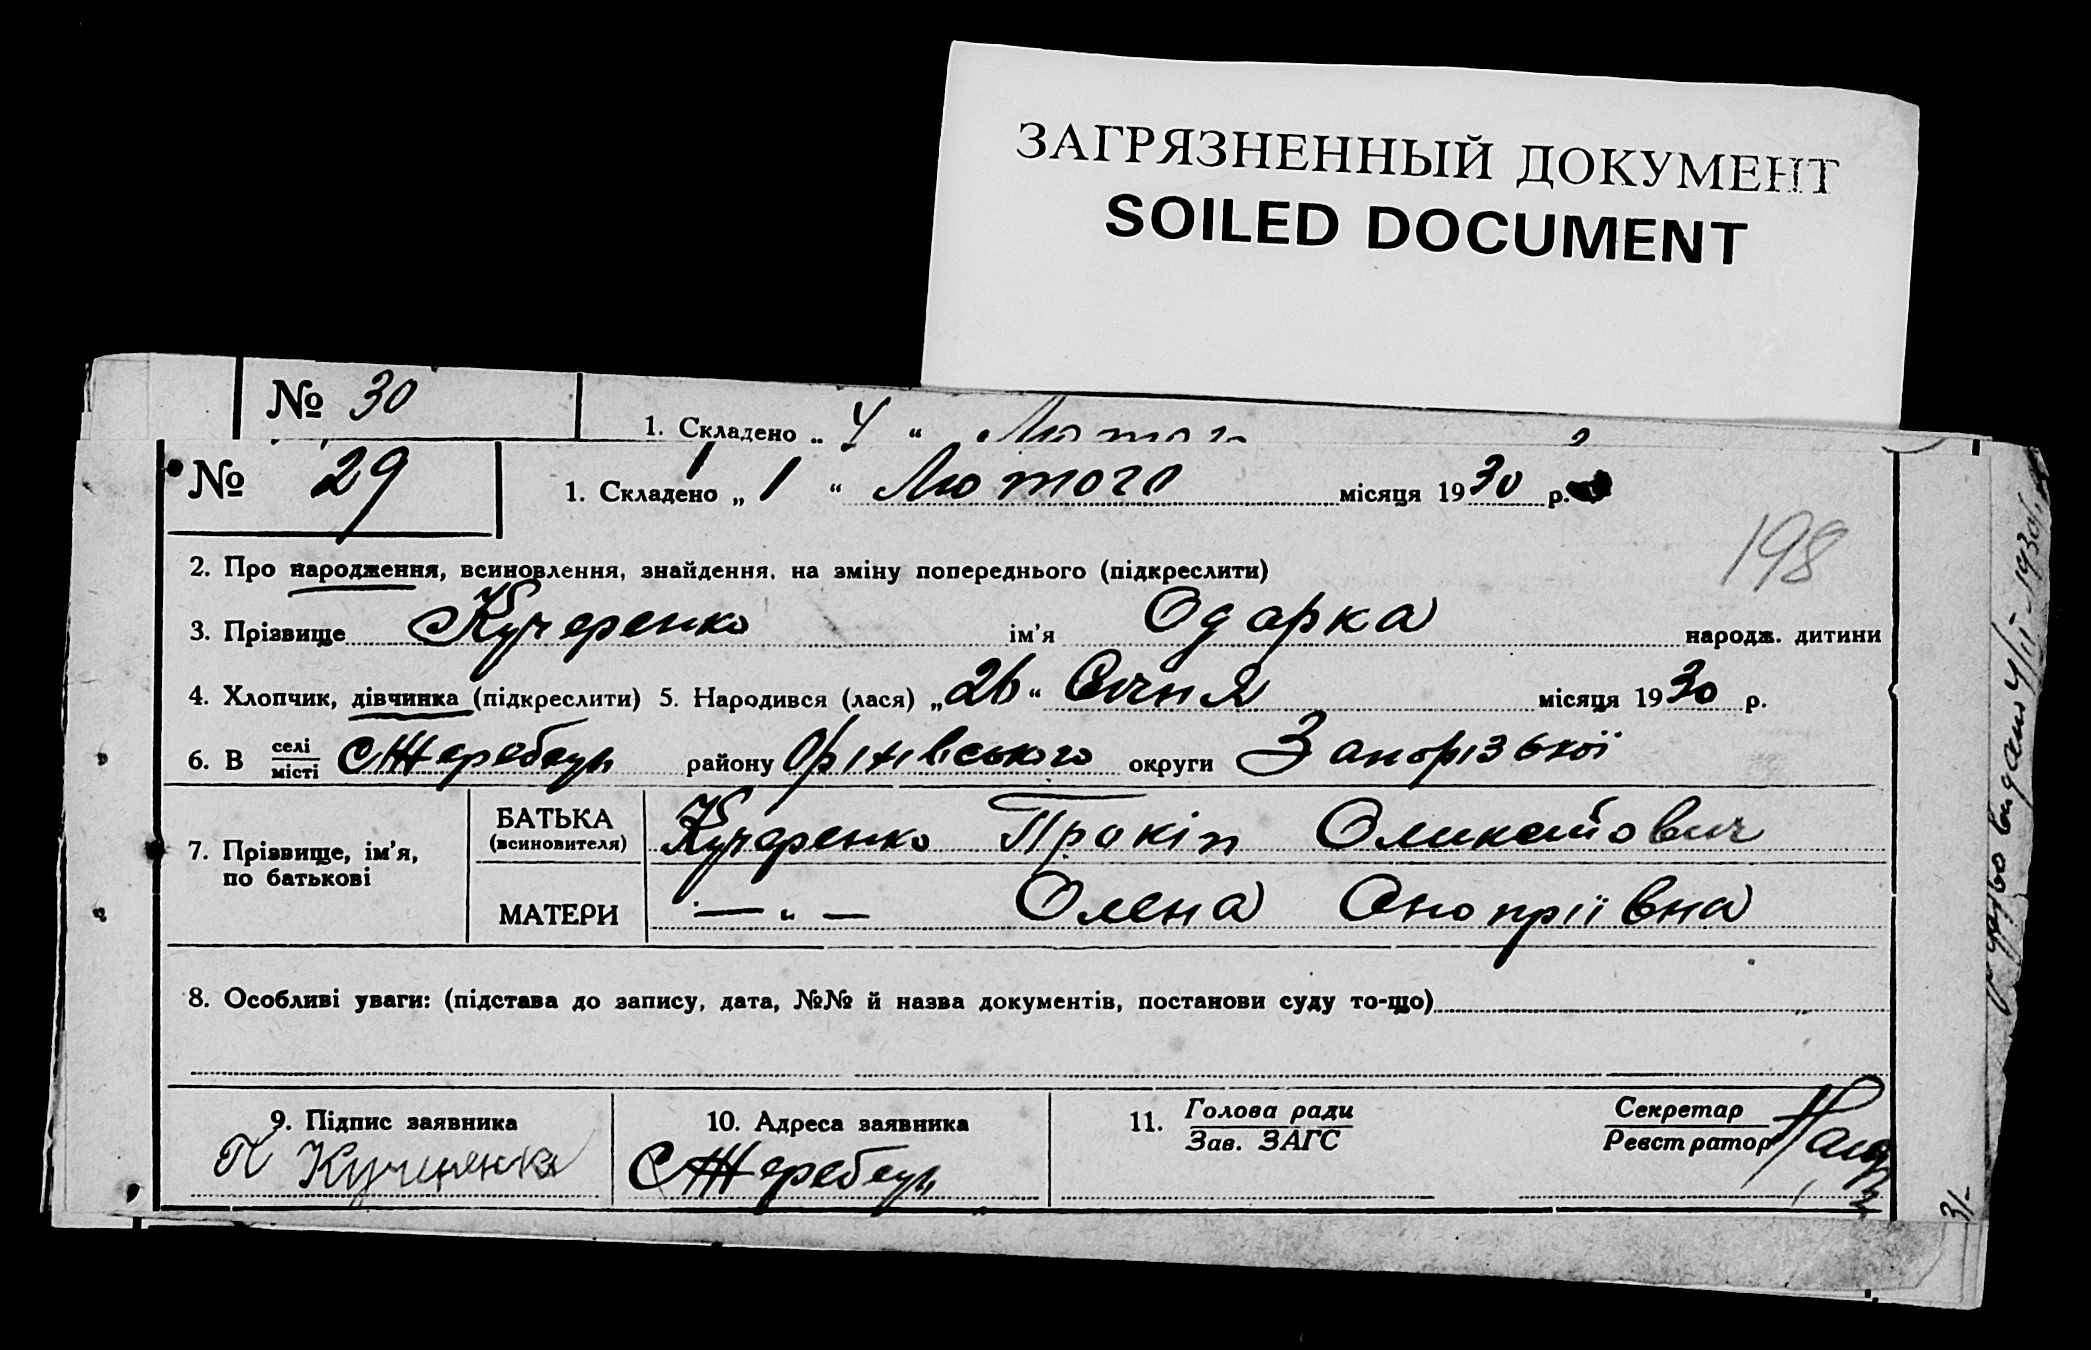 ЗАГРЯЗНЕННЫЙ ДОКУМЕНТ
SOILED DOCUMENT
№ 30
1. Складено „ 4 “ Лютого
№ 29
1. Складено „ 1 “ Лютого місяця 1930 р.
198
2. Про народження, всиновлення, знайдення, на зміну попереднього (підкреслити)
3. Прізвище Кучеренко ім'я Одарка народж. дитини
4. Хлопчик, дівчинка (підкреслити) 5. Народився (лася) „26“ Січня місяця 1930 р.
6. В селі
місті С Жеребець району Оріхівського округи Запорізької
7. Прізвище, ім'я,
по батькові
БАТЬКА
(всиновителя) Кучеренко Прокіп
МАТЕРИ — „ — Олена Онопріївна
8. Особливі уваги: (підстава до запису, дата, №№ й назва документів, постанови суду то-що)
9. Підпис заявника
П Кученянко
10. Адреса заявника
С Жеребець
11. Голова ради
Зав. ЗАГС
Секретар
Реєстратор
31-